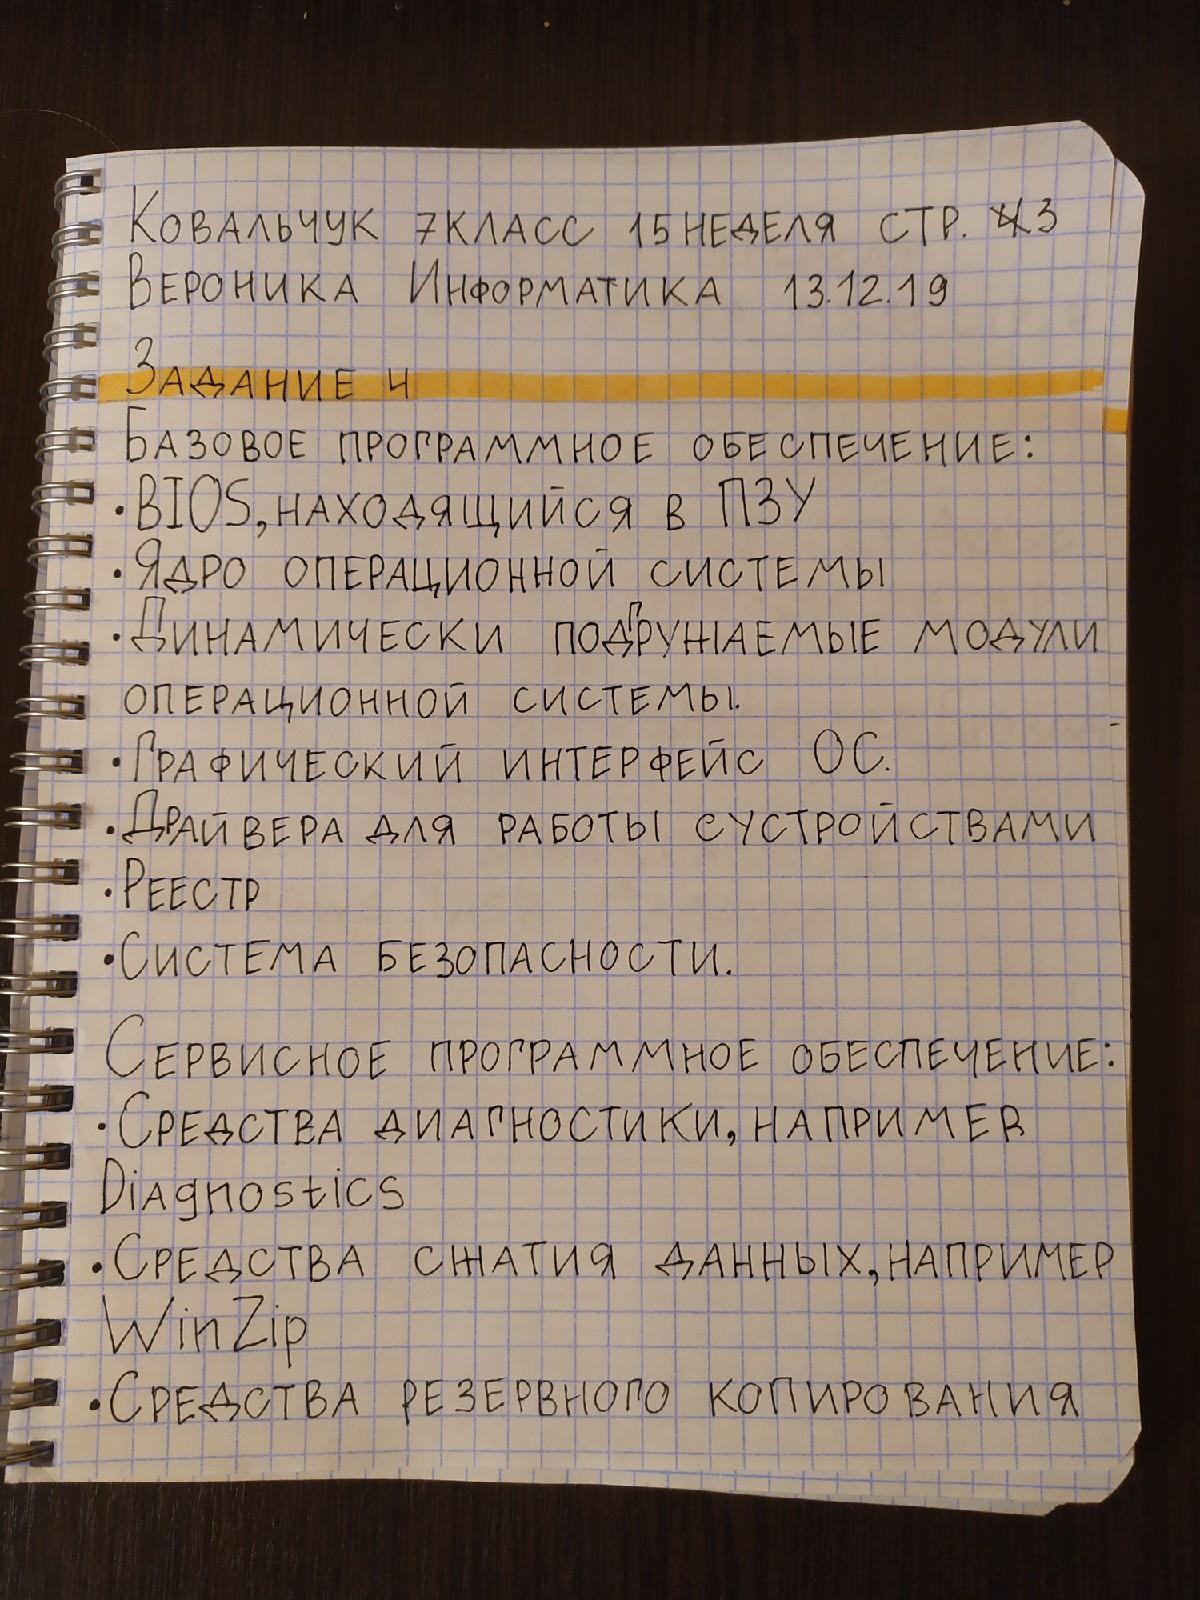 Ковальчук 7 класс 15 неделя стр. 3
Вероника Информатика 13.12.19
Задание 4
Базовое программное обеспечение:
• BIOS, находящийся в ПЗУ
• Ядро операционной системы
• Динамически подгружаемые модули
операционной системы.
• Графический интерфейс ОС.
• Драйвера для работы с устройствами
• Реестр
• Система безопасности.
Сервисное программное обеспечение:
• Средства диагностики, например
Diagnostics
• Средства сжатия данных, например
WinZip
• Средства резервного копирования